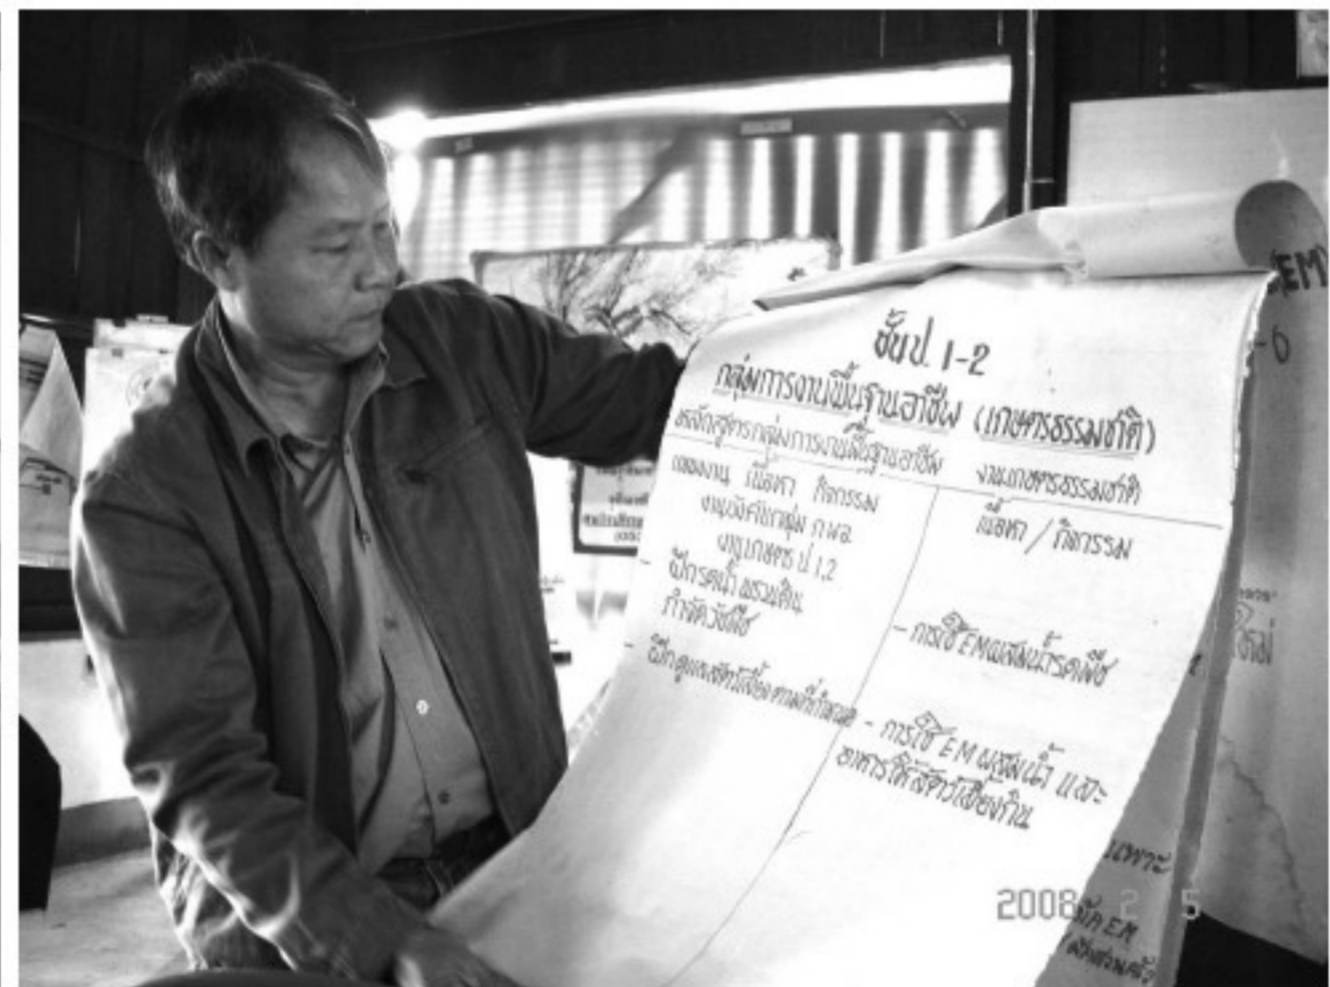 ชั้นป. 1-2
กลุ่มการงานพื้นฐานอาชีพ (เกษตรธรรมชาติ)
หลักสูตรกลุ่มการงานพื้นฐานอาชีพ งานเกษตรธรรมชาติ
เนื้อหา กิจกรรม
งานบังคับกลุ่ม กพอ.
งานเกษตร ป.1,2
- ฝึกรดน้ำ พรวนดิน
กำจัดวัชพืช
- ฝึกดูแลสัตว์เลี้ยงตามที่กำหนด
เนื้อหา / กิจกรรม
- การใช้ EM ผสมน้ำรดพืช
- การใช้ EM ผสมน้ำ และ
อาหารให้สัตว์เลี้ยงกิน
EM)
-6
เพาะ
EM
2008 2 5